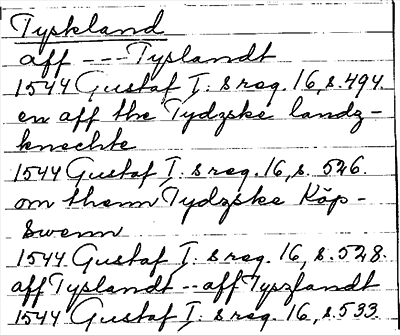 Tyskland
aff --- Tyslandt
1544 Gustaf I:s reg. 16, s. 494.
en aff the Tydzske landz-
knechte
1544 Gustaf I:s reg. 16, s. 526.
om them Tydzske Köp-
swenn
1544 Gustaf I:s reg. 16, s. 528.
aff Tyslandt -- aff Tyszlandt
1544 Gustaf I:s reg. 16, s. 533